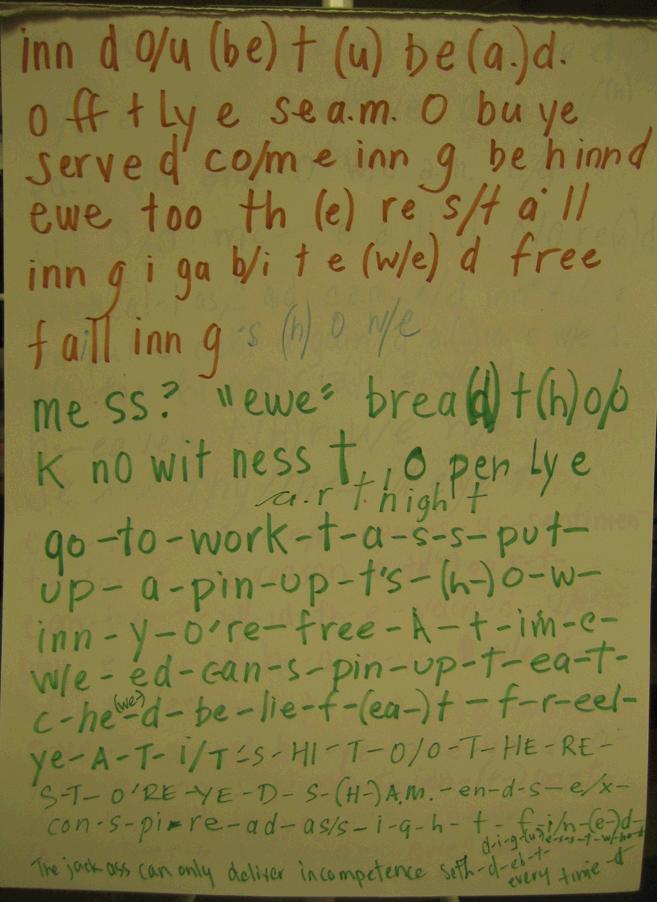 inn d o/u (be) t (u) be (a.) d.
o ff t Ly e se a.m. O bu ye
serve d co/m e inn g be h innd
ewe too th (e) re s/t a ll
inn g i ga b/i t e (w/e) d free
f a ll inn g s (h) o w/e
me ss? "ewe" brea(d) t(h)o/o
K no wit ness t, O pen Ly e
a.r t nigh t
go-to-work-t-a-s-s-put-
up-a-pin-up-t's-(h-)o-w-
inn-y-o're-free-A-t-im-e-
w/e-ed-can-s-pin-up-t-ea-t-
c-he(we-)-d-be-lie-f-(ea-)t-f-r-eel-
ye-A-T-i/T-'S-HI-T-O/O-T-HE-RE-
S-T-O'RE-YE-D-S-(H-)A.M.-en-d-s-e/x-
con-s-pi-re-ad-as/s-i-g-h-t-f-i/n-(e-)d-
The jack ass can only deliver incompetence Seth-d-eb-t-
every time